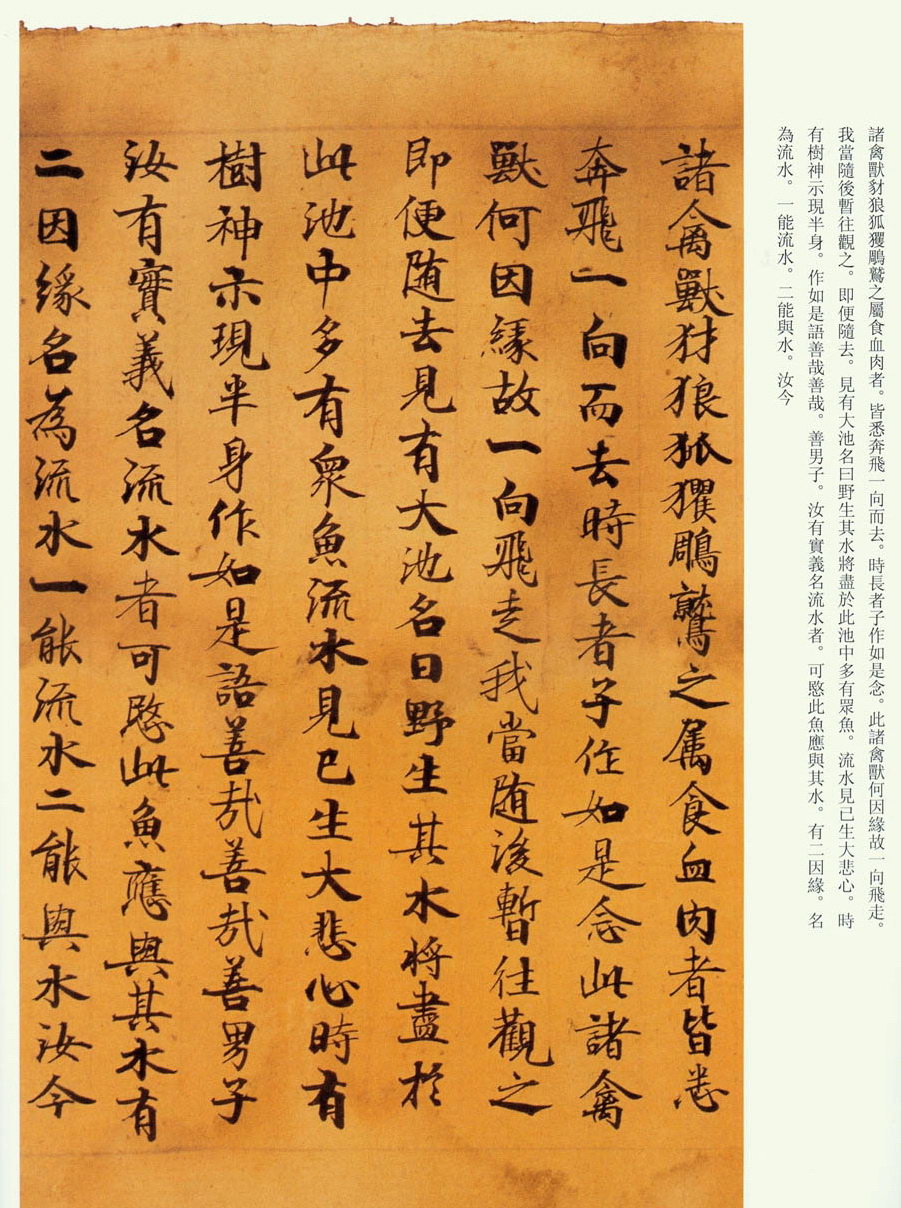 諸禽獸豺狼狐玃鵰鷲之屬食血肉者。皆悉奔飛一向而去。時長者子作如是念。此諸禽獸何因緣故一向飛走。
我當隨後暫往觀之。即便隨去。見有大池名曰野生其水將盡於此池中多有眾魚。流水見已生大悲心。時
有樹神示現半身。作如是語善哉善哉。善男子。汝有實義名流水者。可愍此魚應與其水。有二因緣。名
為流水。一能流水。二能與水。汝今
諸禽獸豺狼狐玃鵰鷲之屬食血肉者皆悉
奔飛一向而去時長者子作如是念此諸禽
獸何因緣故一向飛走我當随後暫往觀之
即便随去見有大池名曰野生其水將盡於
此池中多有眾魚流水見已生大悲心時有
樹神示現半身作如是語善哉善哉善男子
汝有實義名流水者可愍此魚應與其水有
二因緣名為流水一能流水二能與水汝今